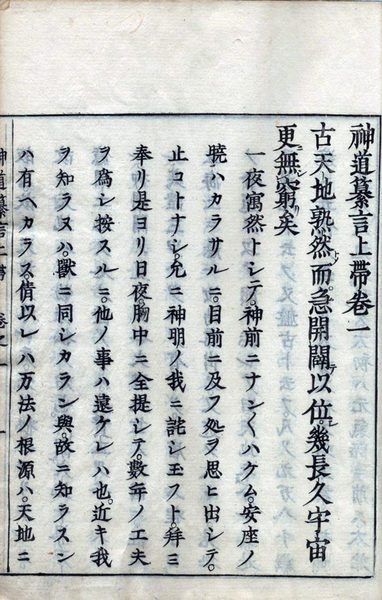 神道纂言上帯巻一
古天地熟然而。急開闢以位。幾長久宇宙
更無窮矣
一夜寓然トシテ。神前ニナン〱ハクム。安座ノ
暁ハカラサルニ。目前ニ及フ処ヲ思ヒ出シテ。
止コトナシ。允ニ神明ノ我ニ詫シ玉フト。拜ミ
奉リ是ヨリ日夜。胸中ニ全提シテ。數年ノ工夫
ヲ爲シ按スルニ。他ノ事ハ遠ケレハ也。近キ我
ヲ知ラヌハ。獸ニ同シカラン與。故ニ知ラスン
ハ有ヘカラス。倩以レハ万法ノ根源ハ。天地ニ
神道纂言上帯 巻之一